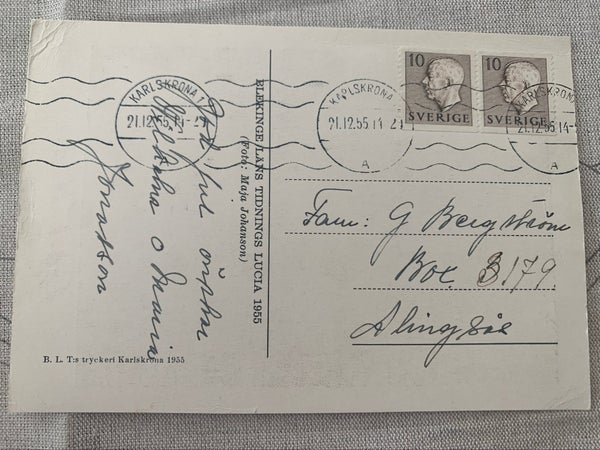 God jul önskar
Helena o Maria
Jonasson
BLEKINGE LÄNS TIDNINGS LUCIA 1955
(Foto: Maja Johanson)
B. L. T:s tryckeri Karlskrona 1955
10
SVERIGE
10
SVERIGE
KARLSKRONA 1
21.12.55.14-2
KARLSKRONA
21.12.55.14-21
A
KARLSKRONA
21.12.55.14-
A
Fam: G Bergström
Box 3179
Alingsås